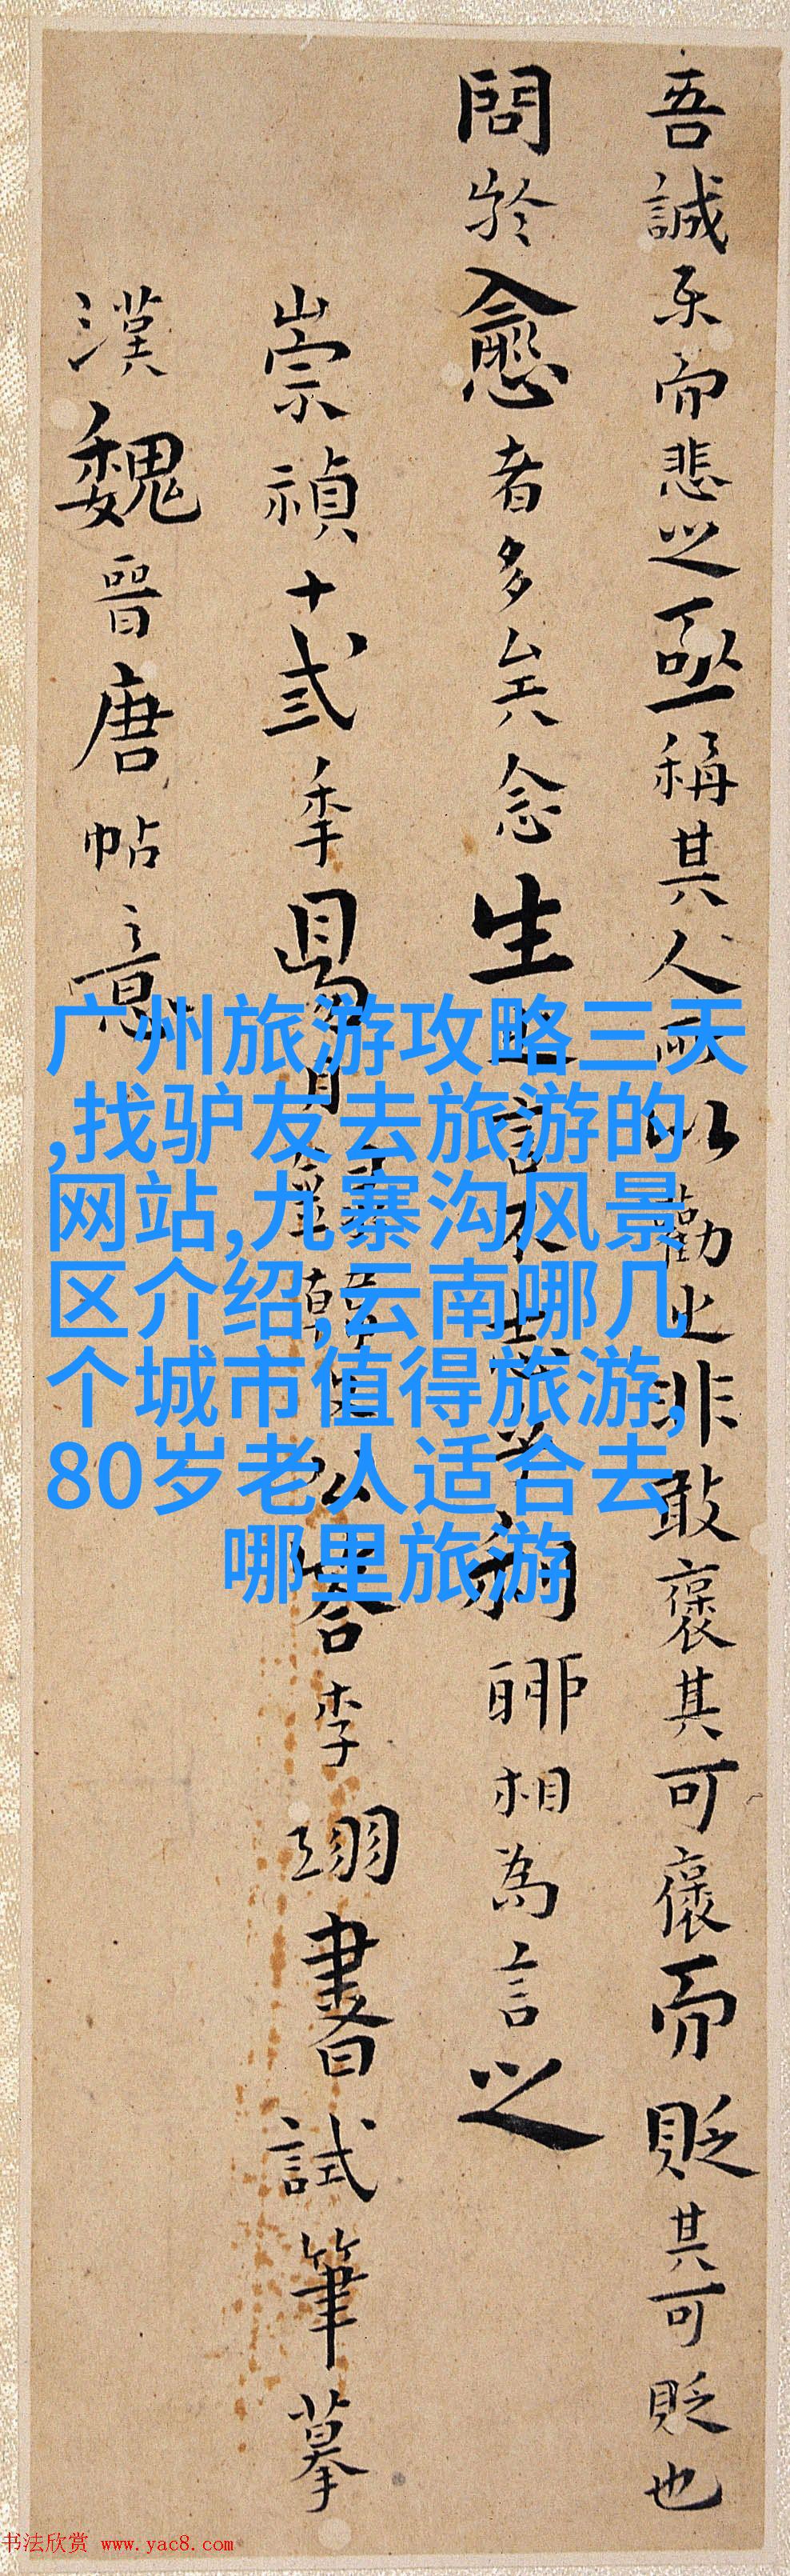 吾誠樂而悲之亟稱其人所以勸之非敢褒其可褒而貶其可貶也
問於愈者多矣念生之言不志乎利聊相為言之
崇禎十貳季 韓文公答李翊書試筆摹
漢魏晉唐帖意
广州旅游攻略三天
,找驴友去旅游的
网站,九寨沟风景
区介绍,云南哪几
个城市值得旅游,
80岁老人适合去
哪里旅游
书法欣赏 www.yac8.com